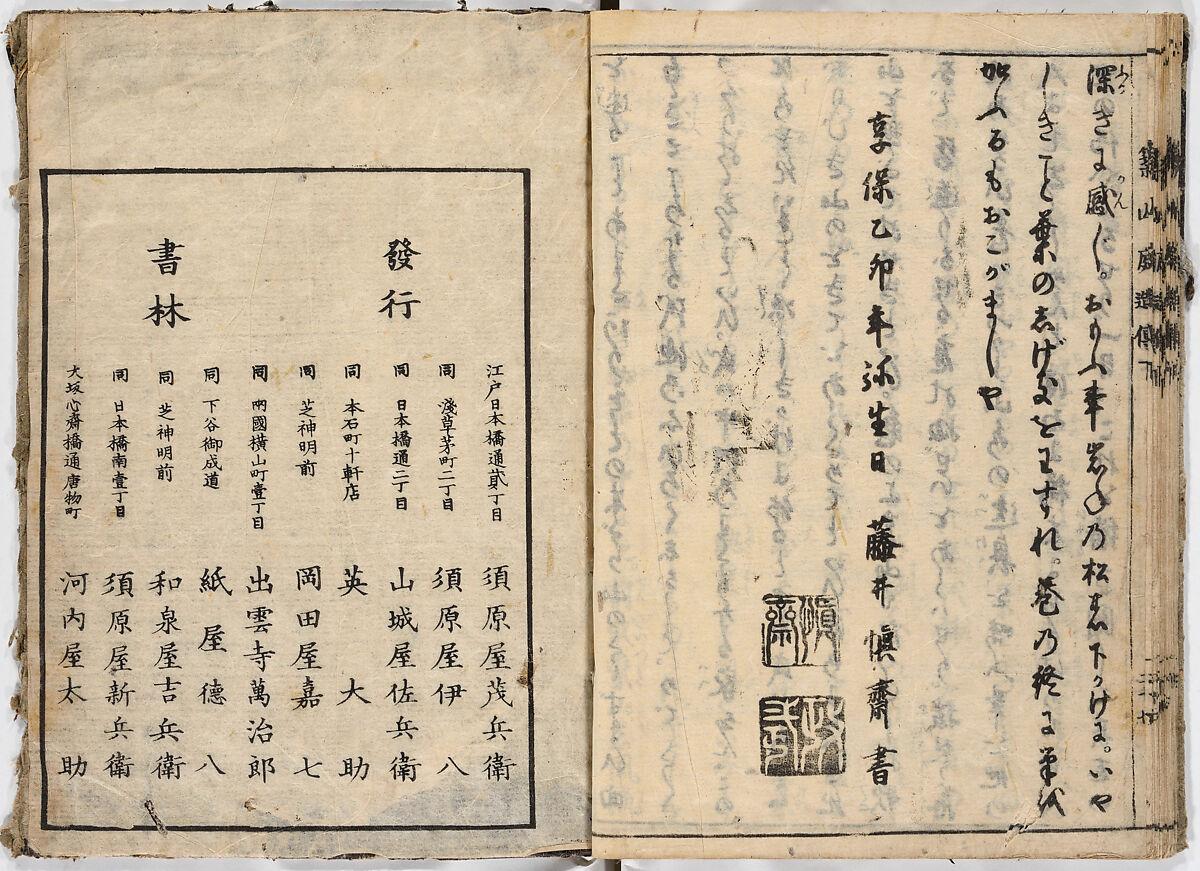 深きに感じ。おもふ事岩ねの松の下かけに。いや
しきこと葉のしげきをわすれ。巻の終に筆を
加ふるもおこがましや
享保乙卯年弥生日 藤井慎齋書
慎齋
築山庭造傳下
發行
書林
江戸日本橋通貳丁目 須原屋茂兵衛
同 淺草茅町二丁目 須原屋伊八
同 日本橋通二丁目 山城屋佐兵衛
同 本石町十軒店 英大助
同 芝神明前 岡田屋嘉七
同 兩國横山町壹丁目 出雲寺萬治郎
同 下谷御成道 紙屋德八
同 芝神明前 和泉屋吉兵衛
同 日本橋南壹丁目 須原屋新兵衛
大坂心齋橋通唐物町 河内屋太助